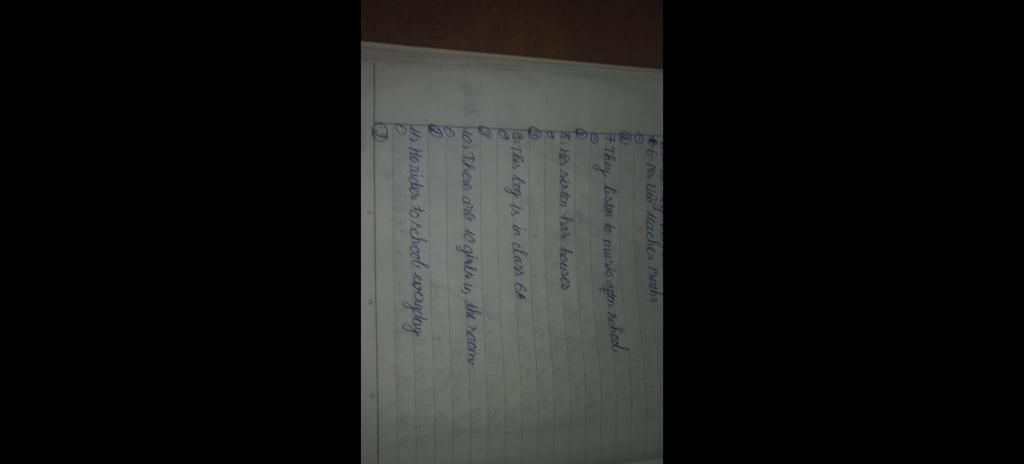 6. Mr Linh teaches maths
⊖
?
7. They listen to music after school.
⊖
?
8. His sister has houses
⊖
?
9. This boy is in class 6A
⊖
?
10. There are 10 girls in the room.
⊖
?
11. He rides to school everyday
⊖
?